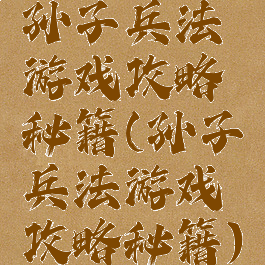 孙子兵法
游戏攻略
秘籍(孙子
兵法游戏
攻略秘籍)